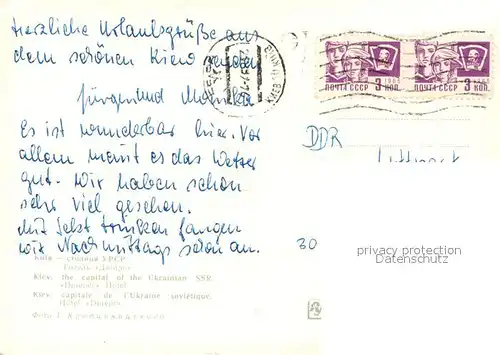 Herzliche Urlaubsgrüße aus
dem schönen Kiew senden
Jürgen und Monika
Es ist wunderbar hier. Vor
allem meint es das Wetter
gut. Wir haben schon
sehr viel gesehen.
Mit Sekt trinken fangen
wir Nachmittags schon an.
Київ — столиця УРСР
Готель «Дніпро»
Kiev, the capital of the Ukrainian SSR.
Hotel
Kiev, capitale de l'Ukraine soviétique.
Hôtel
Фото
ПОЧТА СССР 3 КОП.
ПОЧТА СССР 3 КОП.
DDR
Luftpost
30
privacy protection
Datenschutz